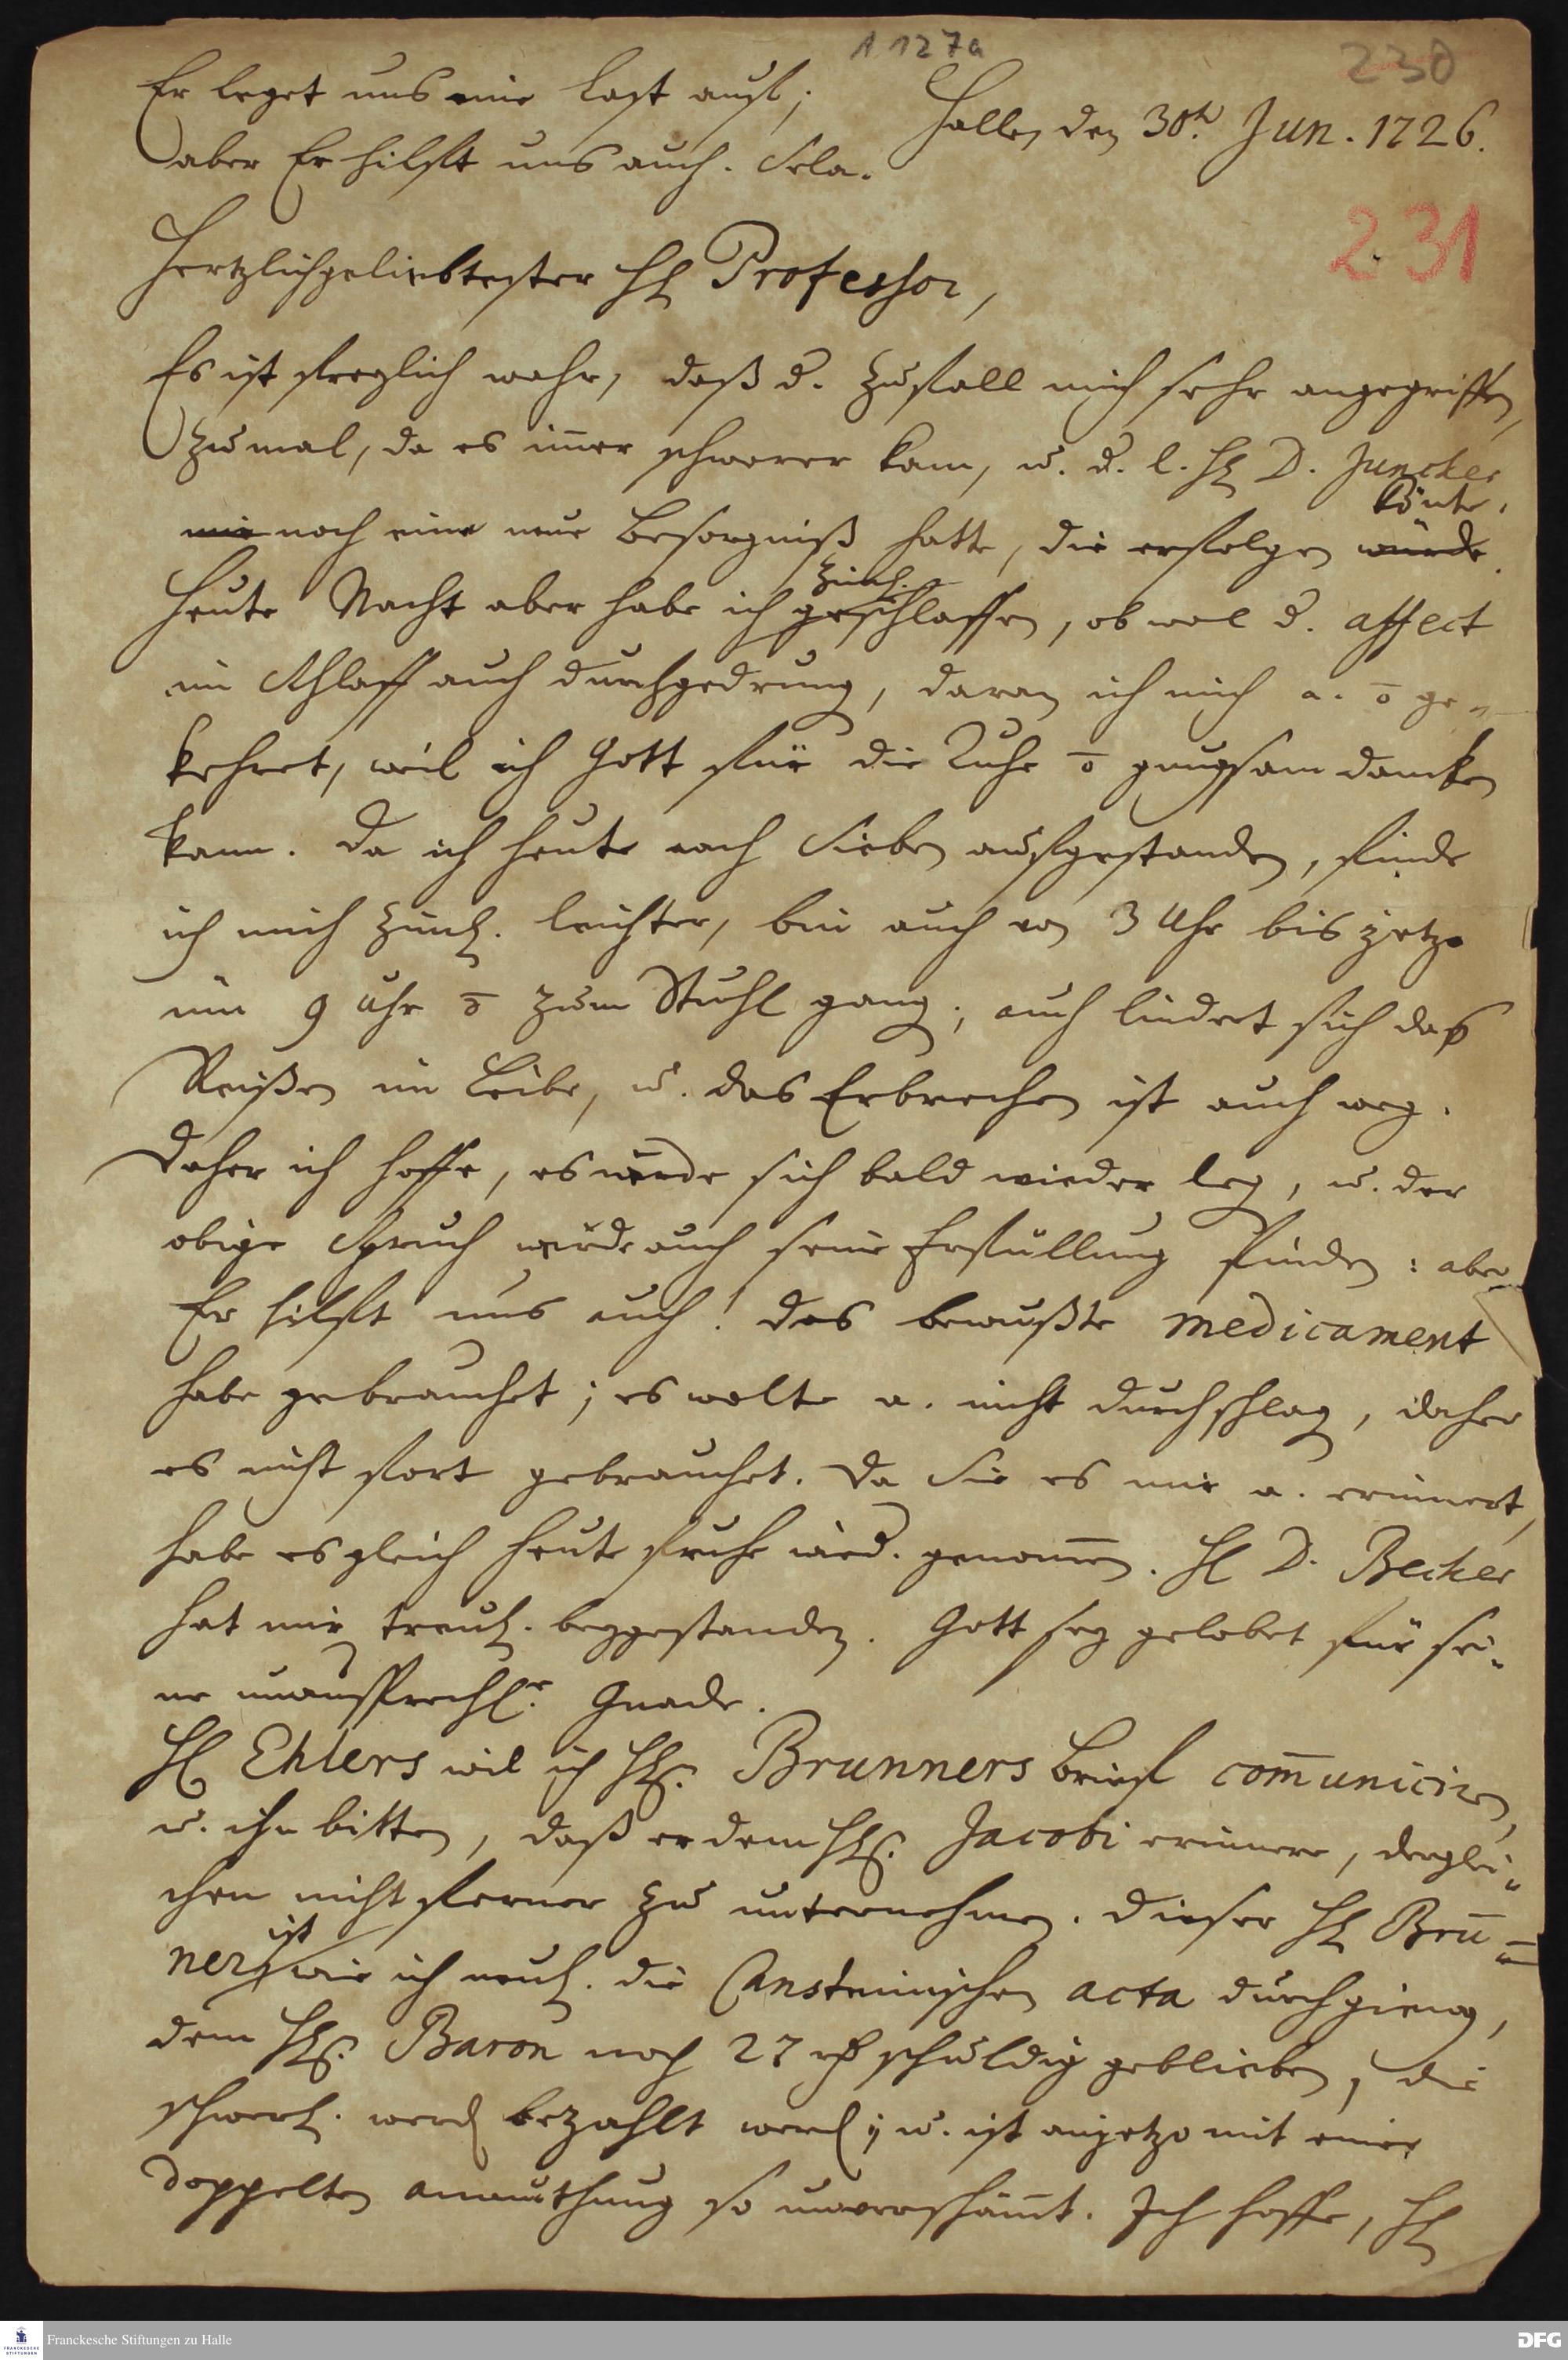 A 127a
230
Er leget uns eine Last auf;
Halle, den 30ten Jun. 1726.
aber Er hilfft uns auch. Sela.
231
Hertzlichgeliebtester H. Professor,
Es ist freylich wahr, daß d. Zufall mich sehr angegriffen,
zumal, da es im̄er schwerer kam, u. d. l. H. D. Juncker
könte.
mir noch eine neue Besorgniß hatte, die erfolgen würde.
ziml.
Heute Nacht aber habe ich geschlaffen, ob wol d. affect
im Schlaff auch durchgedrung, daran ich mich a. ō ge-
kehret, weil ich Gott für die Ruhe ō gnugsam dancken
kann. Da ich heute nach Sieben aufgestanden, finde
ich mich ziml. leichter, bin auch von 3 Uhr bis jetzo
um 9 Uhr ō zum Stuhl gang; auch lindert sich das
Reißen im Leibe, u. das Erbrechen ist auch weg.
Daher ich hoffe, es werde sich bald wieder leg, u. der
obige Spruch würde auch seine Erfüllung finden: aber
Er hilfft uns auch! Das bewußte medicament
habe gebrauchet; es wolte a. nicht durchschlag, daher
es nicht fort gebrauchet. Da Sie es mir a. erinnert,
habe es gleich heute fruhe wied. genom̄en. H. D. Becker
hat mir treul. beygestanden. Gott sey gelobet für sei-
ne unaussprechl.e Gnade.
H. Ehlers wil ich H. Brunners brief com̄uniciren,
u. ihn bitten, daß er dem H. Jacobi erinnere, derglei-
chen nicht ferner zu unternehmen. Dieser H. Brun̄-
ist
ner, wie ich neul. die Cansteinischen acta durchgieng,
dem H. Baron noch 27 rth schuldig geblieben, die
schwerl. werd bezahlt werd; u. ist anjetzo mit einer
doppelten anmuthung so unverschäm̄t. Ich hoffe, H.
Franckesche Stiftungen zu Halle
DFG